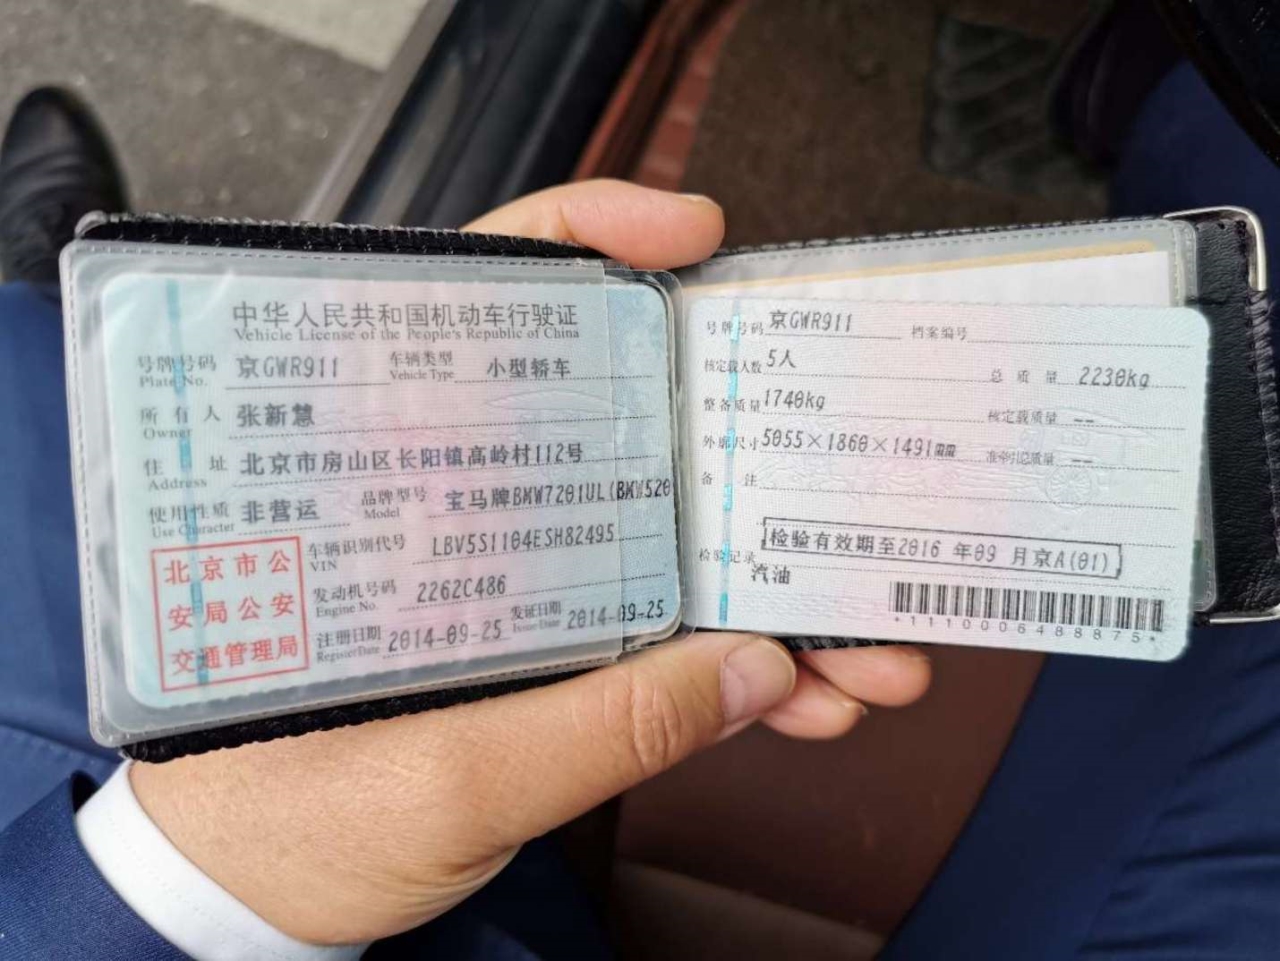 中华人民共和国机动车行驶证
Vehicle License of the People's Republic of China
号牌号码 京GWR911 车辆类型 小型轿车
Plate No. Vehicle Type
所有人 张新慧
Owner
住址 北京市房山区长阳镇高岭村112号
Address
使用性质 非营运 品牌型号 宝马牌BMW7201UL(BMW520
Use Character Model
北京市公
安局公安
交通管理局
车辆识别代号 LBV5S1104ESH82495
VIN
发动机号码 2262C486
Engine No.
注册日期 2014-09-25 发证日期 2014-09-25
Register Date Issue Date
号牌号码 京GWR911 档案编号
核定载人数 5人 总质量 2230kg
整备质量 1740kg 核定载质量 --
外廓尺寸 5055×1860×1491mm 准牵引总质量 --
备注
检验记录 检验有效期至2016年09月京A(01)
汽油
*1110006488875*